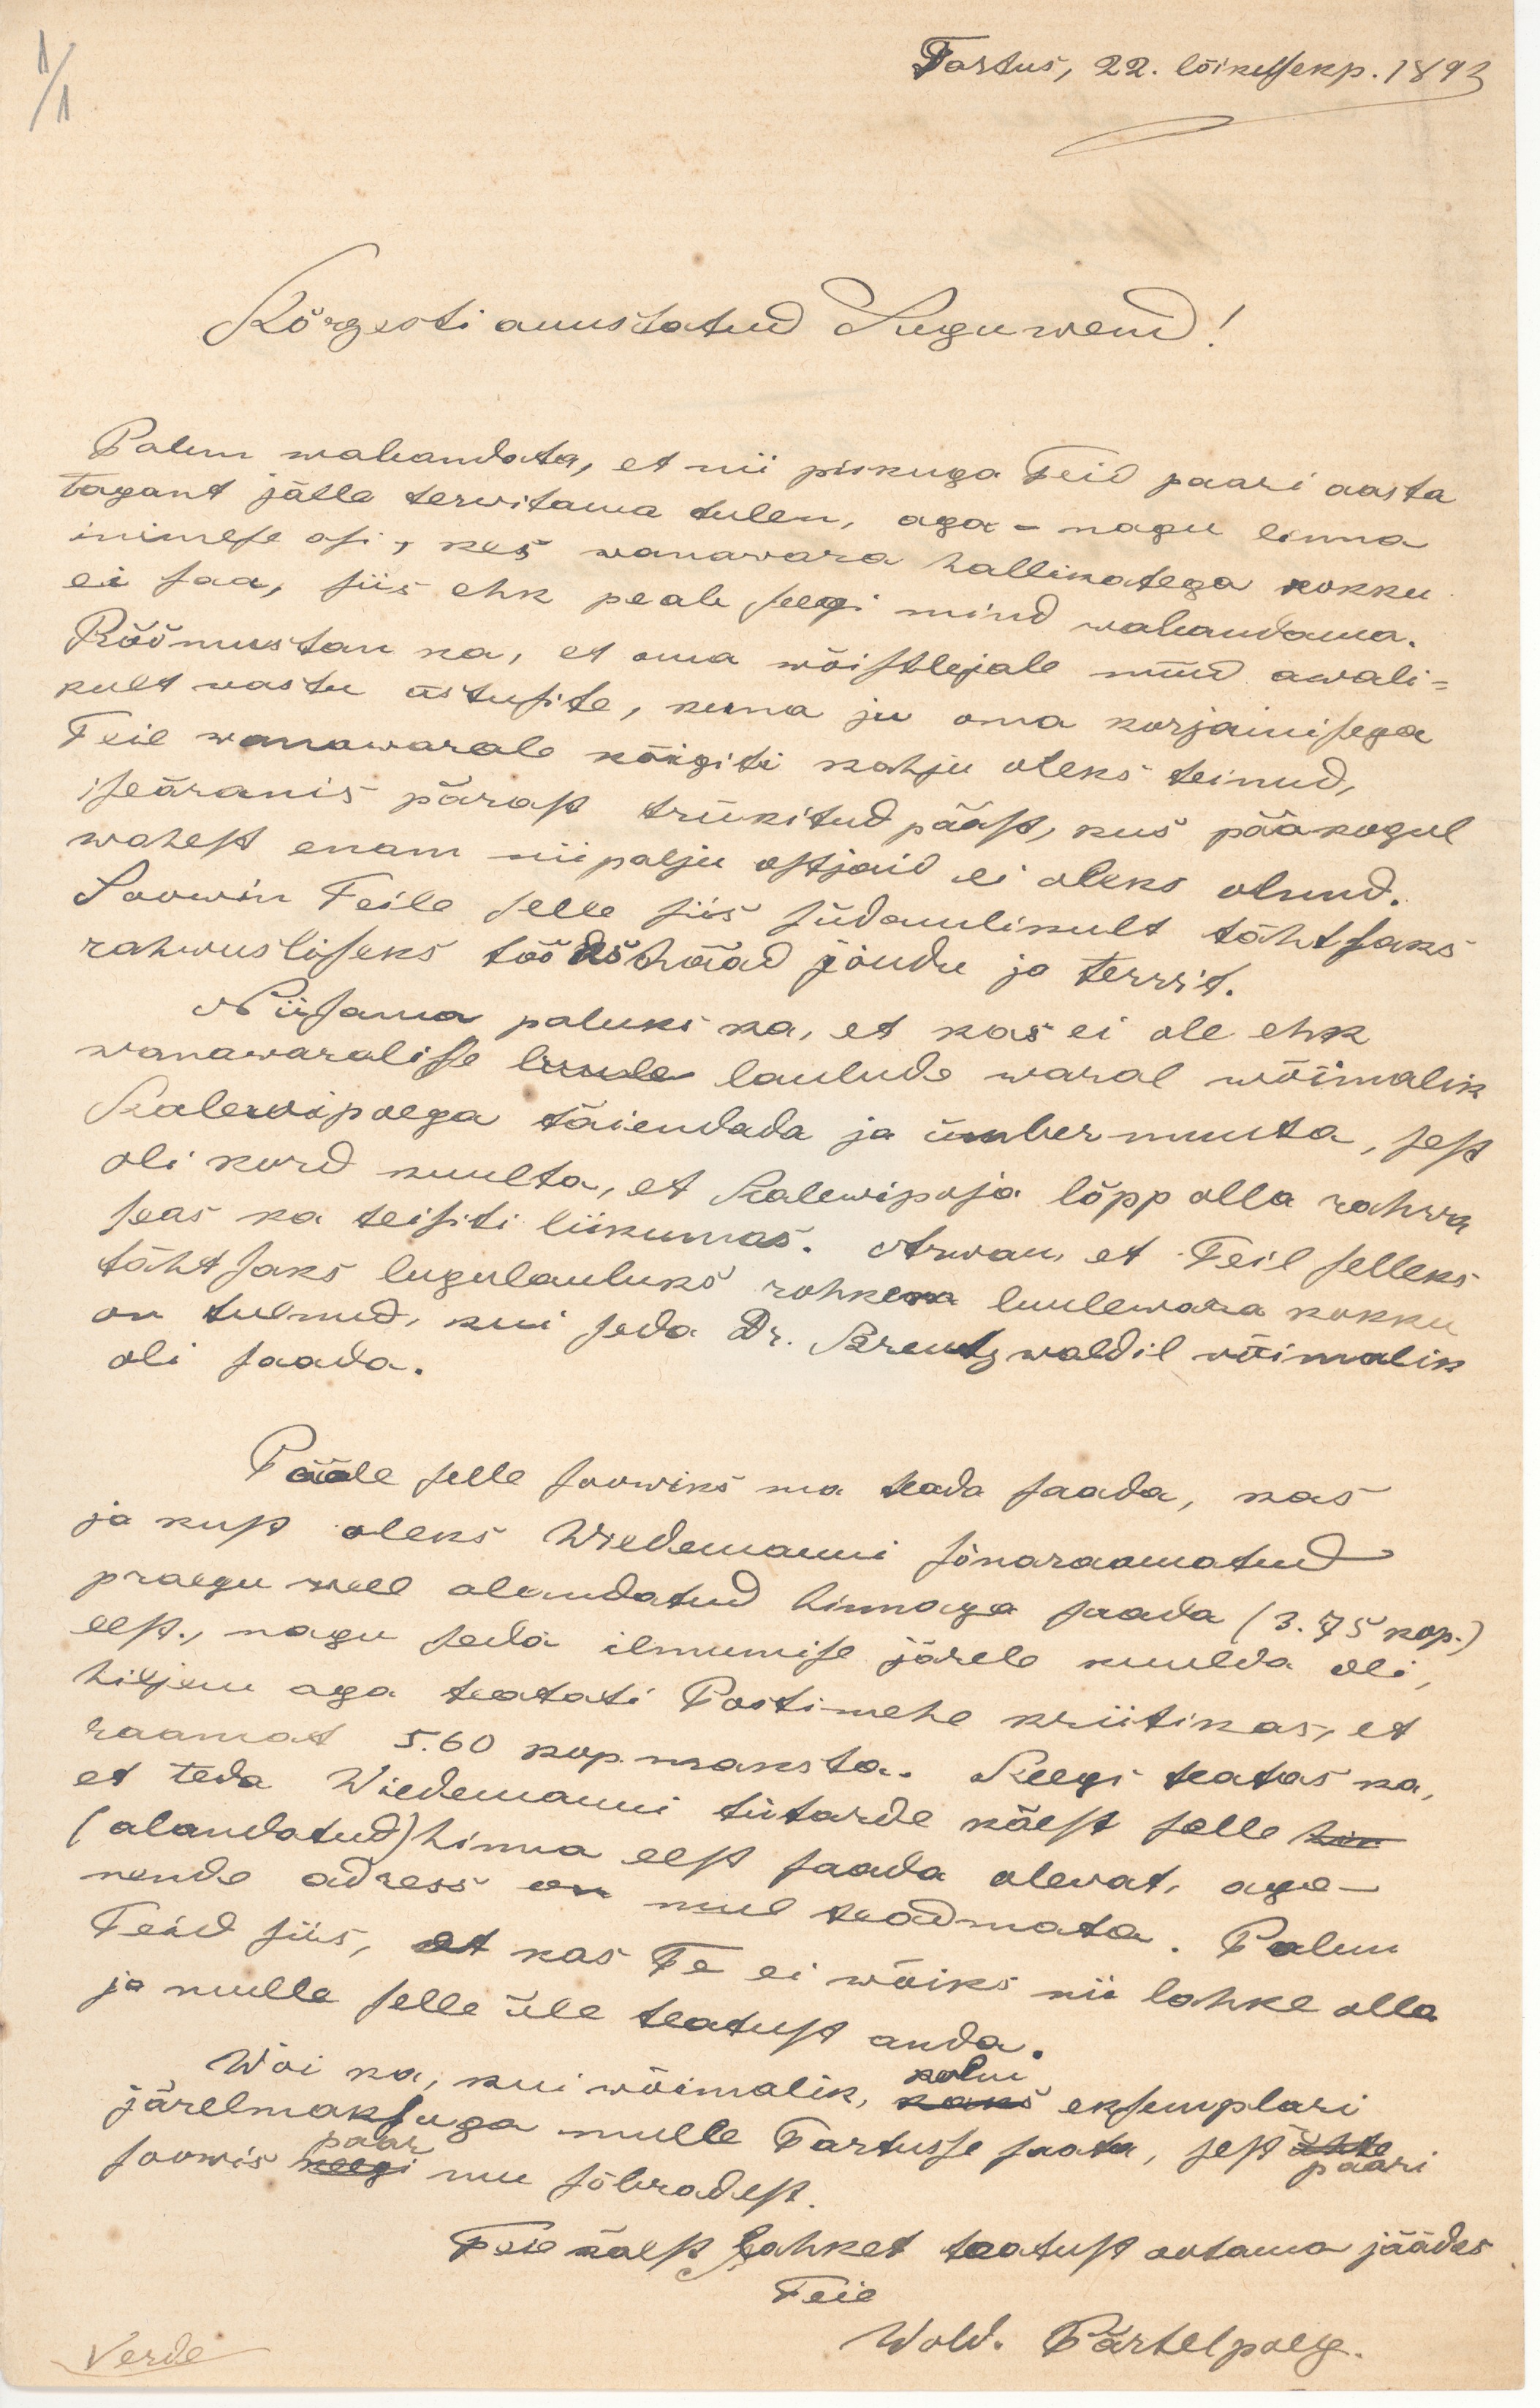 1/1
Tartus, 22. lõikussekp. 1893
Kõrgesti auustatud Suguwend!
Palun wabandata, et nii piskuga Teid paari aasta
tagant jälle terwitama tulen, aga - nagu linna
inimese asi, kes wanawara hallikatega kokku
ei saa, siis ehk peab seegi mind wabandama.
Rõõmustan ka, et oma wõistlejale nüüd awali=
kult wastu astusite, kuna ju oma korjamisega
Teie wanawarale kõigiti kahju oleks teinud,
iseäranis pärast trükitud pääst, kus pääkogul
wahest enam niipalju ostjaid ei oleks olnud.
Soowin Teile selle siis südamlikult tähtsaks
rahwusliseks tööks hääd jõudu ja terwist.
Niisama paluks ka, et kas ei ole ehk
wanawaralisse luule laulude waral wõimalik
Kalewipoega täiendada ja ümber muuta, sest
oli kord kuulta, et Kalewipoja lõpp olla rahwa
seas ka teisiti liikumas. Arwan, et Teil selleks
tähtsaks lugulauluks rohkem luulewara kokku
on tulnud, kui seda Dr. Kreutzwaldil wõimalik
oli saada.
Pääle selle soowiks ma teada saada, kas
ja kust oleks Wiedemanni sõnaraamatud
praegu weel alandatud hinnaga saada (3.75 kop.)
eest, nagu seda ilmumise järele kuulda oli,
hiljem aga teatati Postimehe kriitikas, et
raamat 5.60 kop. maksta. Keegi teatas ka,
et teda Wiedemanni tütarde käest selle hin
(alandatud) hinna eest saada olewat, aga
nende adress on mul teadmata. Palun
Teid siis, et kas Te ei wõiks nii lahke olla
ja mulle selle üle teatust anda.
Wõi ka, kui wõimalik, kaks kolm eksemplari
järelmaksuga mulle Tartusse saata, sest ühte paari
soowis keegi paar mu sõbradest.
Teie käest lahket teatust ootama jäädes
Teie
Wold. Pärtelpoeg.
Verde